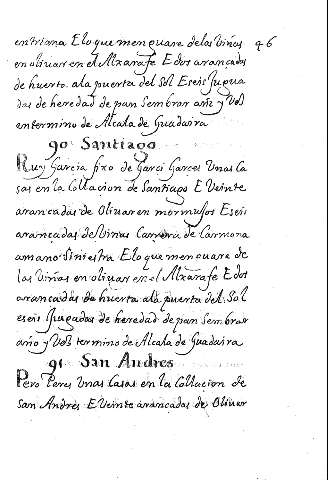 entriana Elo que menguare delas Viñas 96
en olivar en el Alxarafe E dos arançadas
de huerto. ala puerta del Sol E seis Jugua
das de heredad de pan Sembrar año y Vdº
entermino de Alcala de Guadaira
90 Santiago
Ruy Garcia fixo de Garci Garces Unas Ca
sas en la Collacion de Santiago E Veinte
arancadas de Olivar en mormujos E seis
arancadas de Vinas Carrera de Carmona
amano Siniestra Elo que menguare de
las Viñas en olivar en el Alxarafe E dos
arancadas de huerta ala puerta del Sol
e seis Jugadas de heredad de pan Sembrar
año y Vdº termino de Alcala de Guadaira
91 San Andres
Pero Peres Unas Casas en la Collacion de
San Andres E Veinte arancadas de Olivar